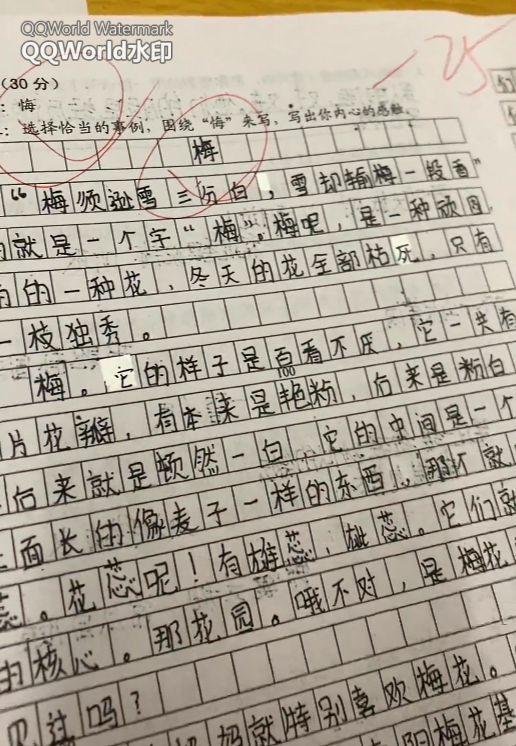 QQWorld Watermark
QQWorld水印
-25
（30分）
：悔
：选择恰当的事例，围绕“悔”来写，写出你内心的感触
梅
“梅须逊雪三分白，雪却输梅一段香”
就是一个字“梅”。梅呢，是一种顽
的一种花，冬天的花全部枯死，只有
一枝独秀。
梅。它的样子是百看不厌，它一共有
100
片花瓣，有本来是艳粉，后来是粉白
后来就是顿然一白，它的中间是一个
面长的像麦子一样的东西，那个就
蕊。花蕊呢！有雄蕊，雌蕊。它们就
的核心。那花园。哦不对，是梅花
见过吗？
妈就特别喜欢梅花。
梅花基